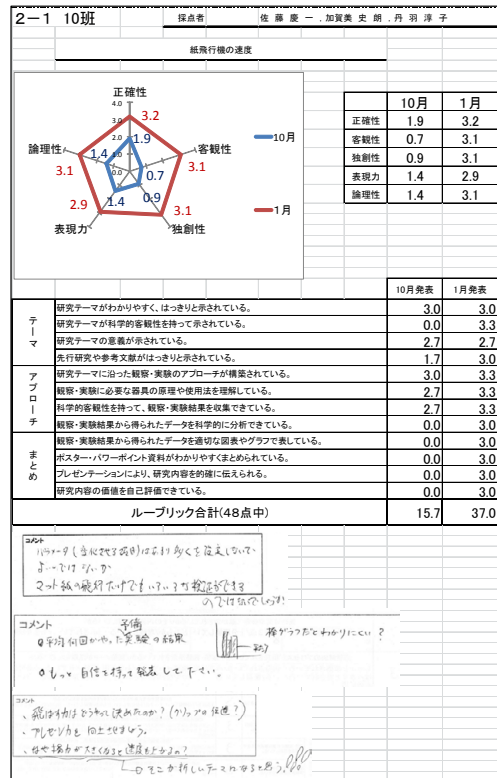 2－1　10班
採点者
佐藤慶一．加賀美史朗．丹羽淳子
紙飛行機の速度
正確性
客観性
独創性
表現力
論理性
4.0
2.0
0.0
3.2
3.1
3.1
2.9
3.1
1.9
0.7
0.9
1.4
1.4
10月
1月
10月 1月
正確性 1.9 3.2
客観性 0.7 3.1
独創性 0.9 3.1
表現力 1.4 2.9
論理性 1.4 3.1
10月発表 1月発表
テーマ
研究テーマがわかりやすく、はっきりと示されている。 3.0 3.0
研究テーマが科学的客観性を持って示されている。 0.0 3.3
研究テーマの意義が示されている。 2.7 2.7
先行研究や参考文献がはっきりと示されている。 1.7 3.0
アプローチ
研究テーマに沿った観察・実験のアプローチが構築されている。 3.0 3.3
観察・実験に必要な器具の原理や使用法を理解している。 2.7 3.3
科学的客観性を持って、観察・実験結果を収集できている。 2.7 3.3
観察・実験結果から得られたデータを科学的に分析できている。 0.0 3.0
まとめ
観察・実験結果から得られたデータを適切な図表やグラフで表している。 0.0 3.0
ポスター・パワーポイント資料がわかりやすくまとめられている。 0.0 3.0
プレゼンテーションにより、研究内容を的確に伝えられる。 0.0 3.0
研究内容の価値を自己評価できている。 0.0 3.0
ルーブリック合計(48点中) 15.7 37.0
コメント
パラメータ(変化させる項目)はあまり多くを設定しないで
よいのではないか
マット紙の飛行だけでもいろいろな検証ができる
のではないでしょうか!
コメント
予備
平均何回かやった実験の結果
棒グラフだとわかりにくい?
もっと自信を持って発表して下さい。
コメント
飛ばす力はどうやって決めたのか?
プレゼン力を向上させましょう。
なぜ揚力が大きくなると速度も上がるの?
そこが新しいテーマになると思う。